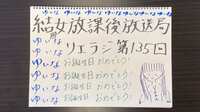 ゆいな ゆいな ゆいな ゆいな ゆいな
結女放課後放送局
ゆいな ソエラジ第135回
ゆいな お誕生日おめでとう!
ゆいな お誕生日おめでとう!
ゆいな お誕生日おめでとう!
ゆいな お誕生日おめでとう!